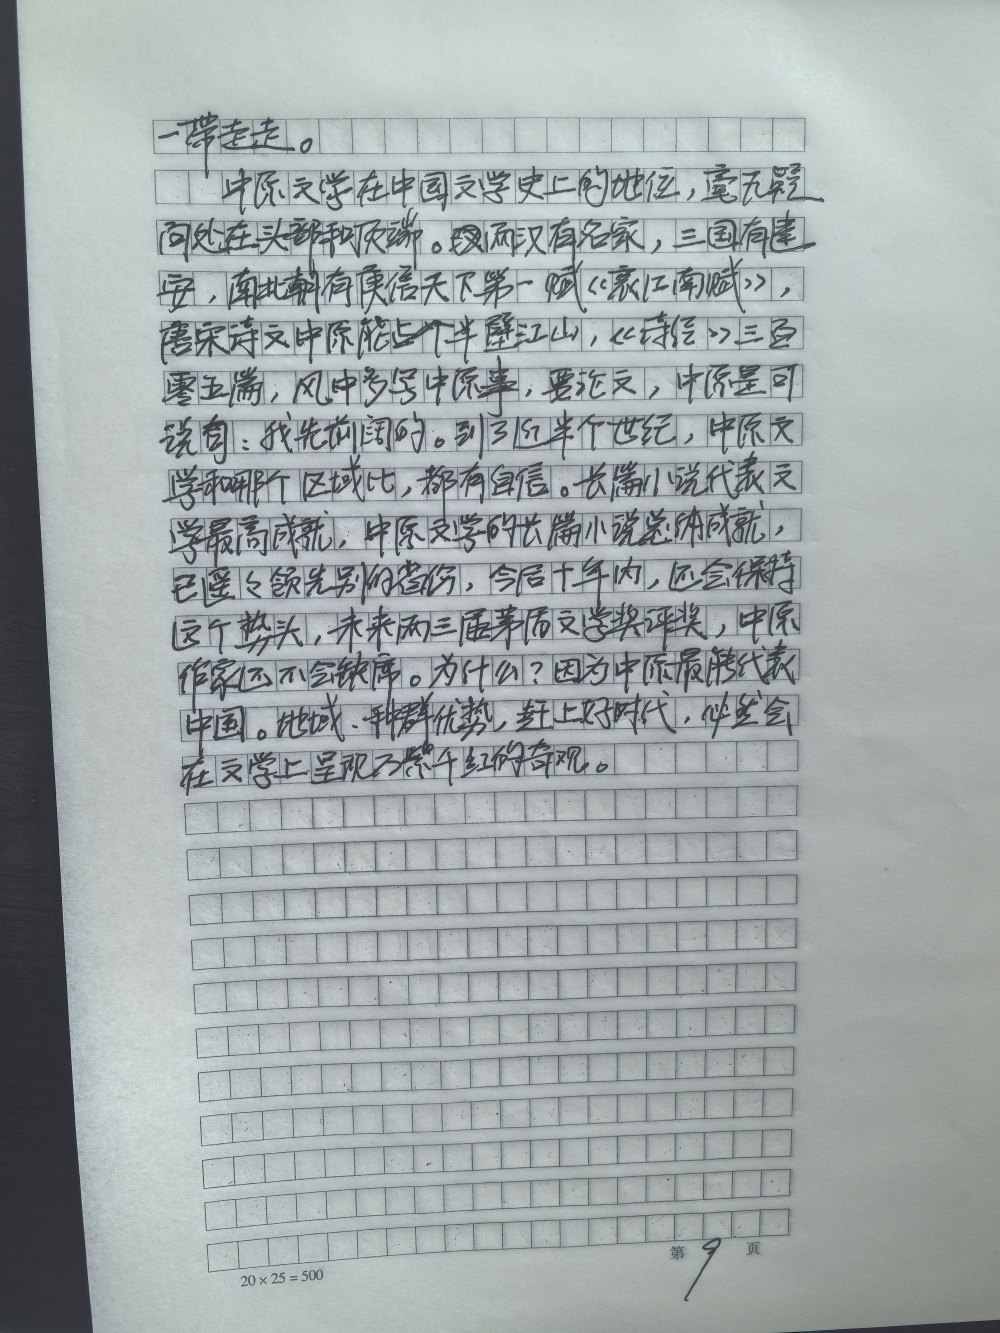 一带走走。
中原文学在中国文学史上的地位，毫无疑
问处在头部和顶端。两汉有名家，三国有建
安，南北朝有庾信天下第一赋《哀江南赋》，
唐宋诗文中原能占个半壁江山，《诗经》三百
零五篇，风中多写中原事，要论文，中原是可
说句：我先前阔的。到了近半个世纪，中原文
学和哪个区域比，都有自信。长篇小说代表文
学最高成就，中原文学的长篇小说总体成就，
已遥々领先别的省份，今后十年内，还会保持
这个势头，未来两三届茅盾文学奖评奖，中原
作家还不会缺席。为什么？因为中原最能代表
中国。地域、种群优势，赶上好时代，必然会
在文学上呈现万紫千红的奇观。
20×25=500
第 9 页